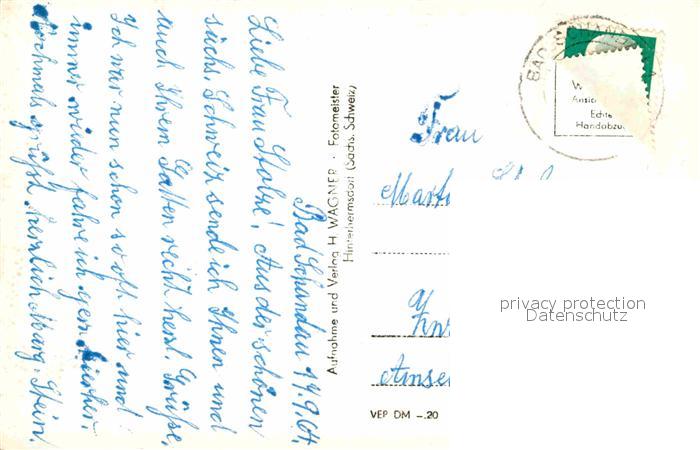 Bad Schandau 14.9.64.
Liebe Frau Stolze! Aus der schönen
sächs. Schweiz sende ich Ihnen und
auch Ihrem Gatten recht herzl. Grüße,
Ich war nun schon so oft hier und
immer wieder fahre ich gern hierher.
Nochmals grüßt herzlich Marg. Stein.
Aufnahme und Verlag H. WAGNER · Fotomeister
Hinterhermsdorf (Sächs. Schweiz)
BAD SCHANDAU
W
Ansic
Echte
Handabzu
Frau
Mart
Ams
VEP DM -.20
privacy protection
Datenschutz